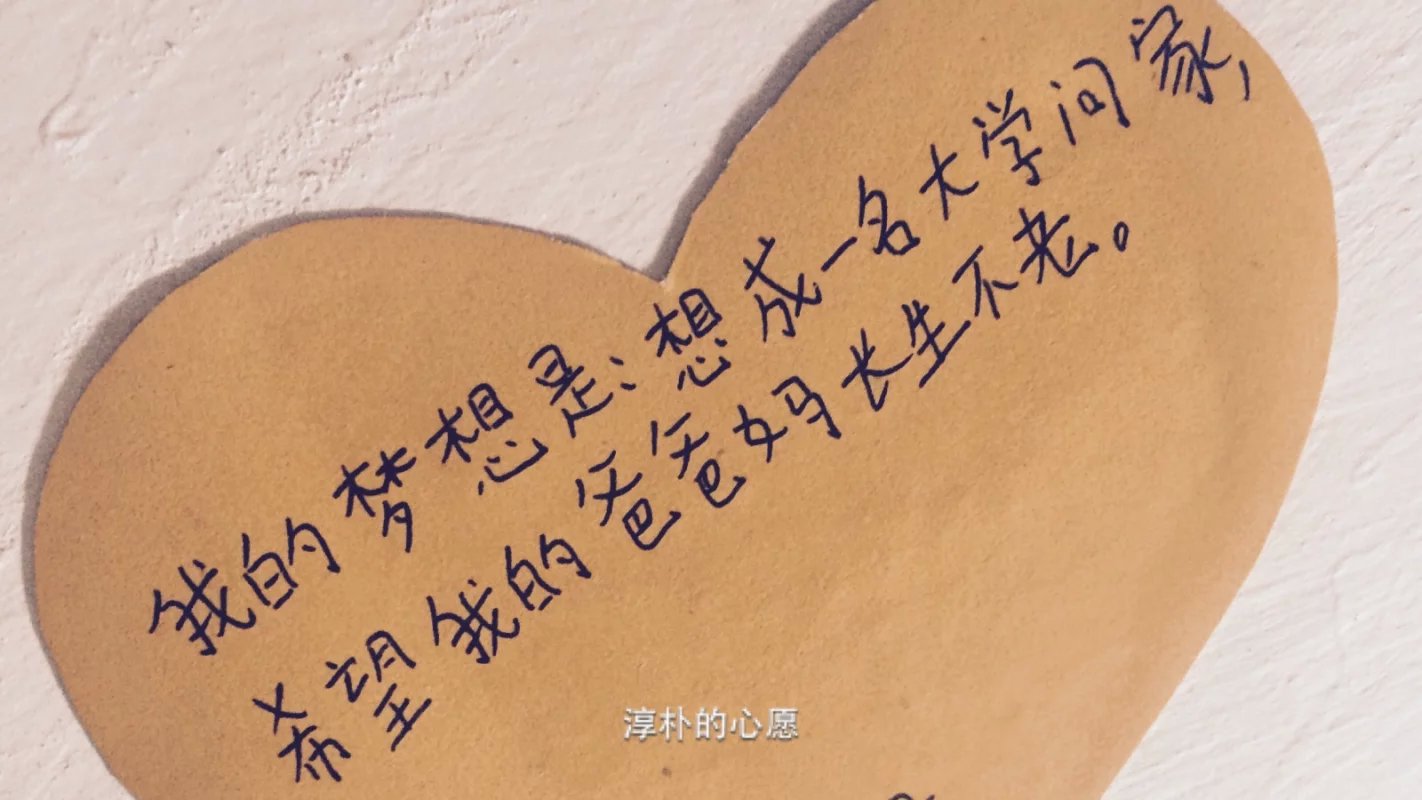 我的梦想是:想成一名大学问家,
希望我的爸爸妈长生不老。
淳朴的心愿